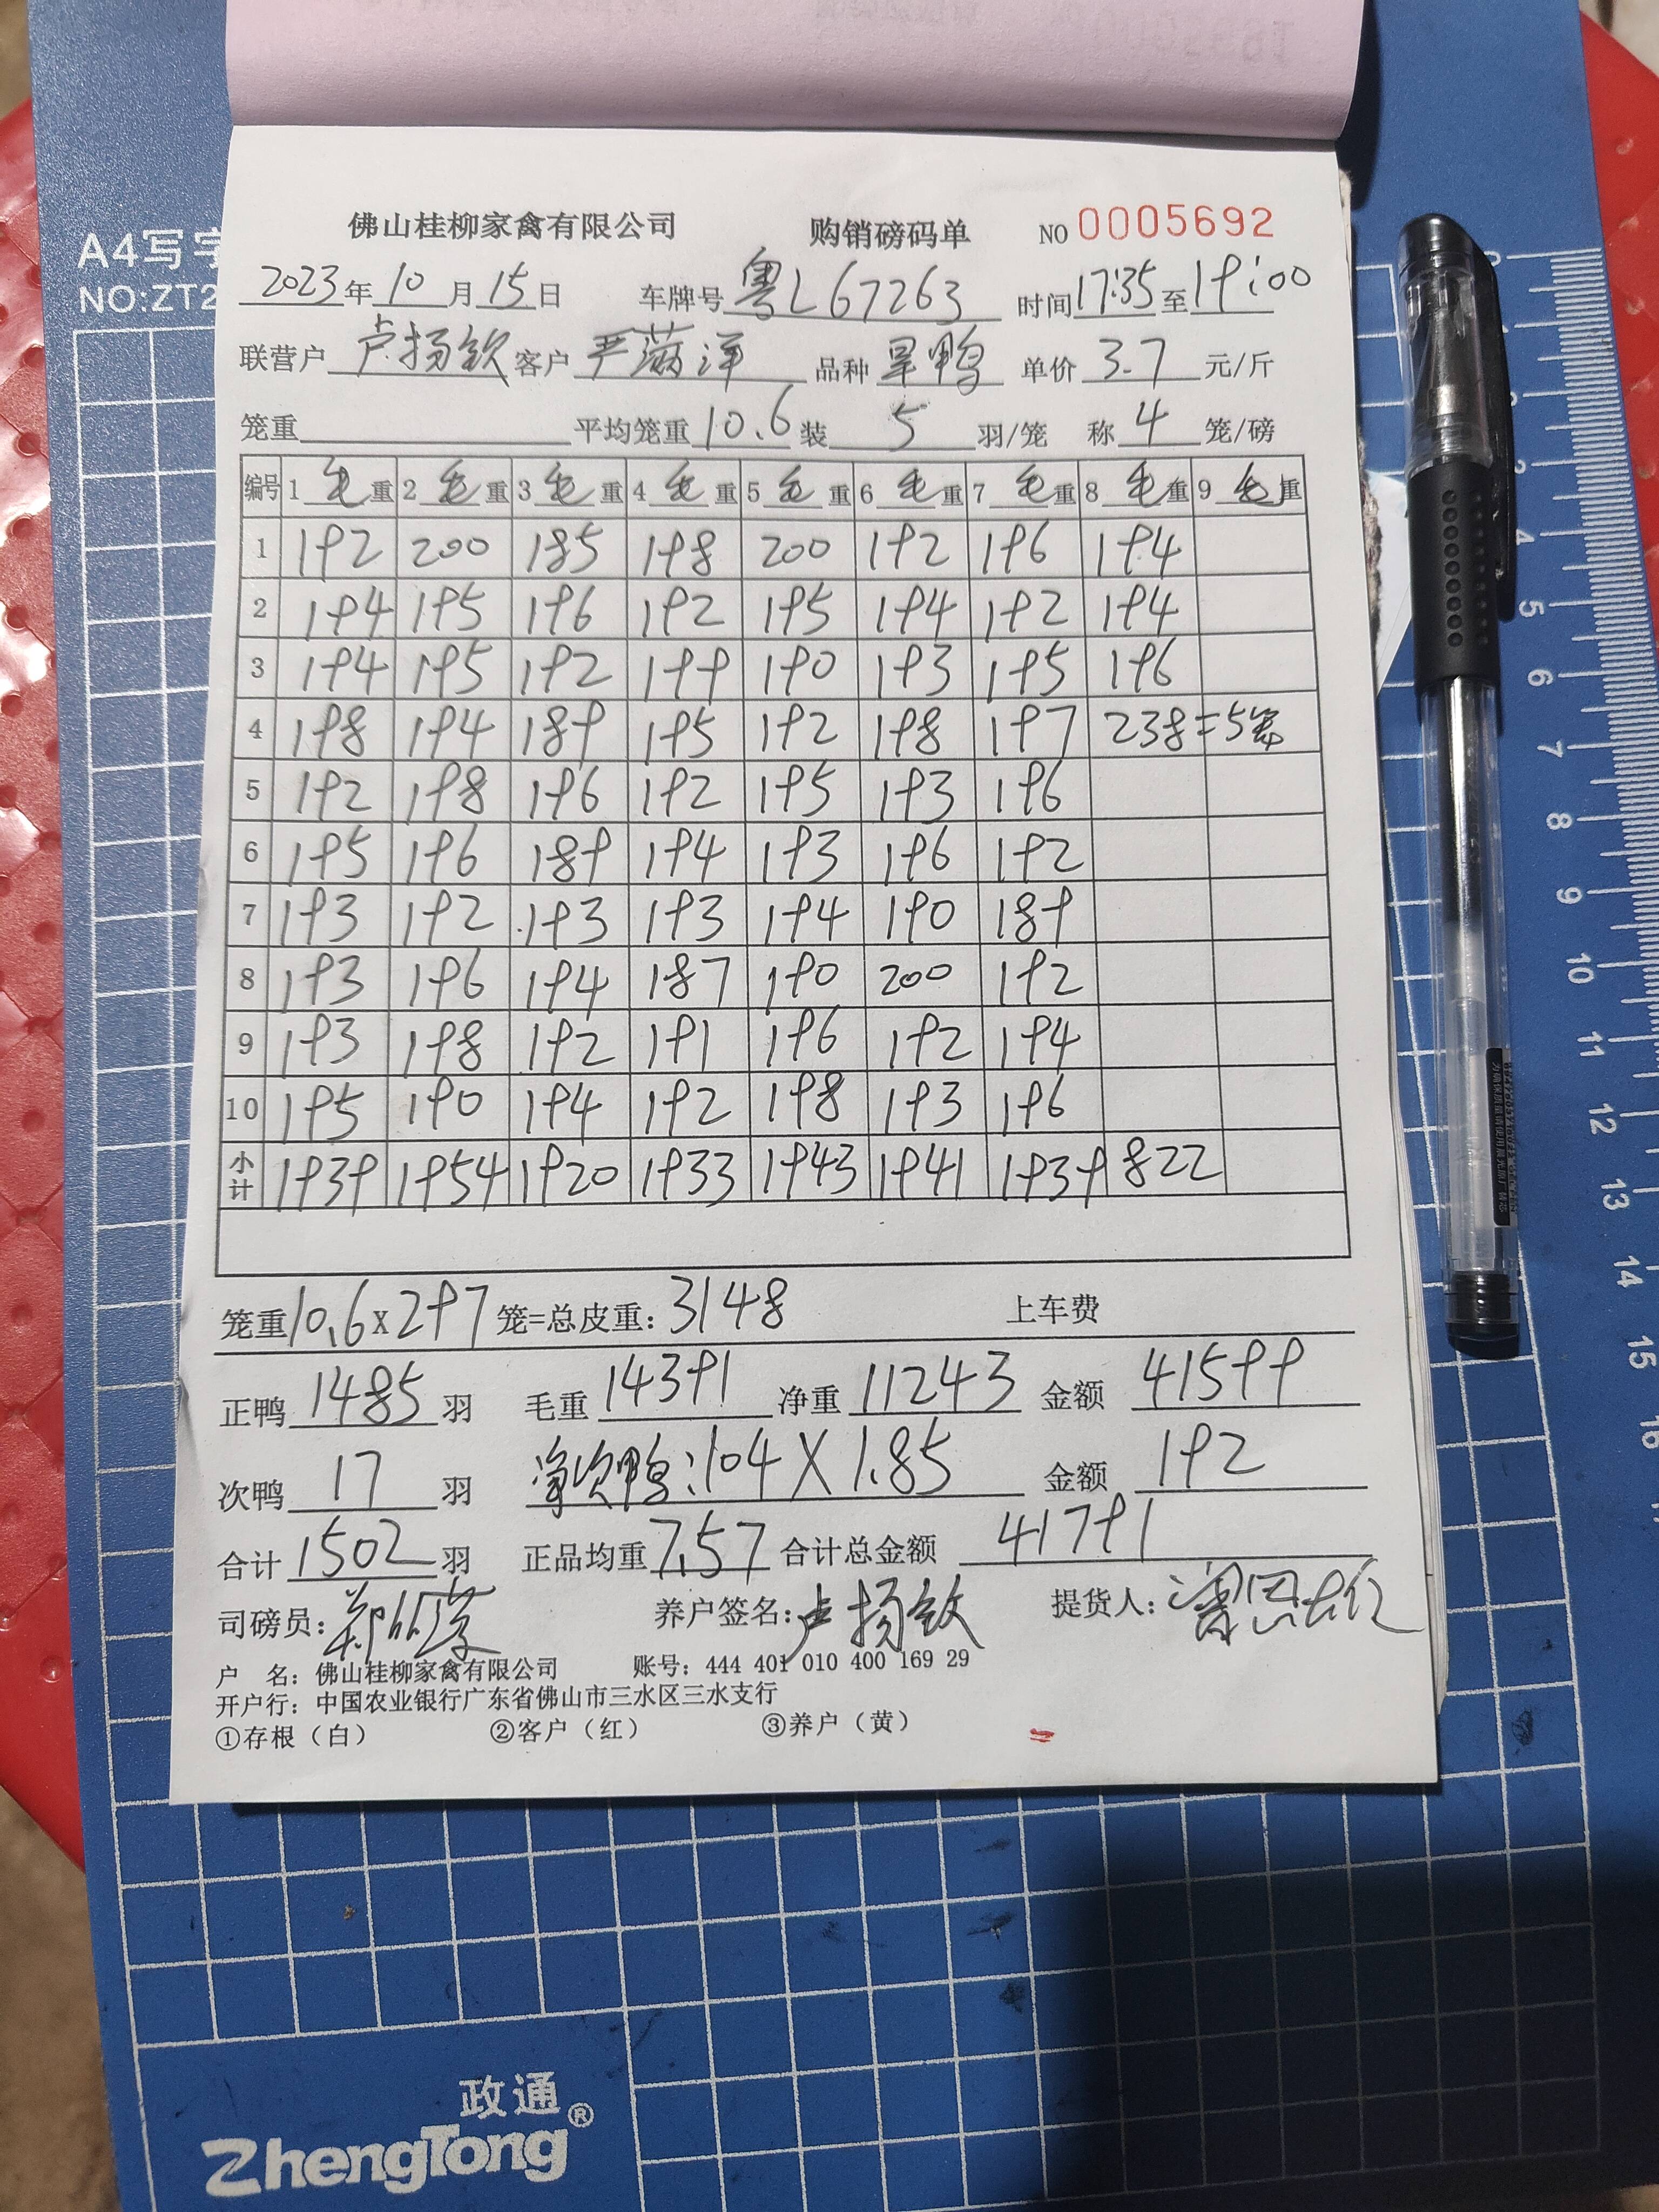 A4写字
NO:ZT2
佛山桂柳家禽有限公司 购销磅码单 NO 0005692
2023年10月15日 车牌号 粤L67263 时间 17:35 至 19:00
联营户 卢扬钦 客户 严满洋 品种 旱鸭 单价 3.7 元/斤
笼重 平均笼重 10.6 装 5 羽/笼 称 4 笼/磅
编号 1 毛重 2 毛重 3 毛重 4 毛重 5 毛重 6 毛重 7 毛重 8 毛重 9 毛重
1 192 200 185 198 200 192 196 194
2 194 195 196 192 195 194 192 194
3 194 195 192 199 190 193 195 196
4 198 194 189 195 192 198 197 238=5笼
5 192 198 196 192 195 193 196
6 195 196 189 194 193 196 192
7 193 192 193 193 194 190 189
8 193 196 194 187 190 200 192
9 193 198 192 191 196 192 194
10 195 190 194 192 198 193 196
小计 1939 1954 1920 1933 1943 1941 1939 822
笼重 10.6 x 297 笼=总皮重: 3148 上车费
正鸭 1485 羽 毛重 14391 净重 11243 金额 41599
次鸭 17 羽 净次鸭:104 X 1.85 金额 192
合计 1502 羽 正品均重 7.57 合计总金额 41791
司磅员: 养户签名: 卢扬钦 提货人:
户 名: 佛山桂柳家禽有限公司 账号: 444 401 010 400 169 29
开户行: 中国农业银行广东省佛山市三水区三水支行
①存根（白） ②客户（红） ③养户（黄）
政通®
ZhengTong
4
5
6
7
8
9
10
11
12
13
14
15
16